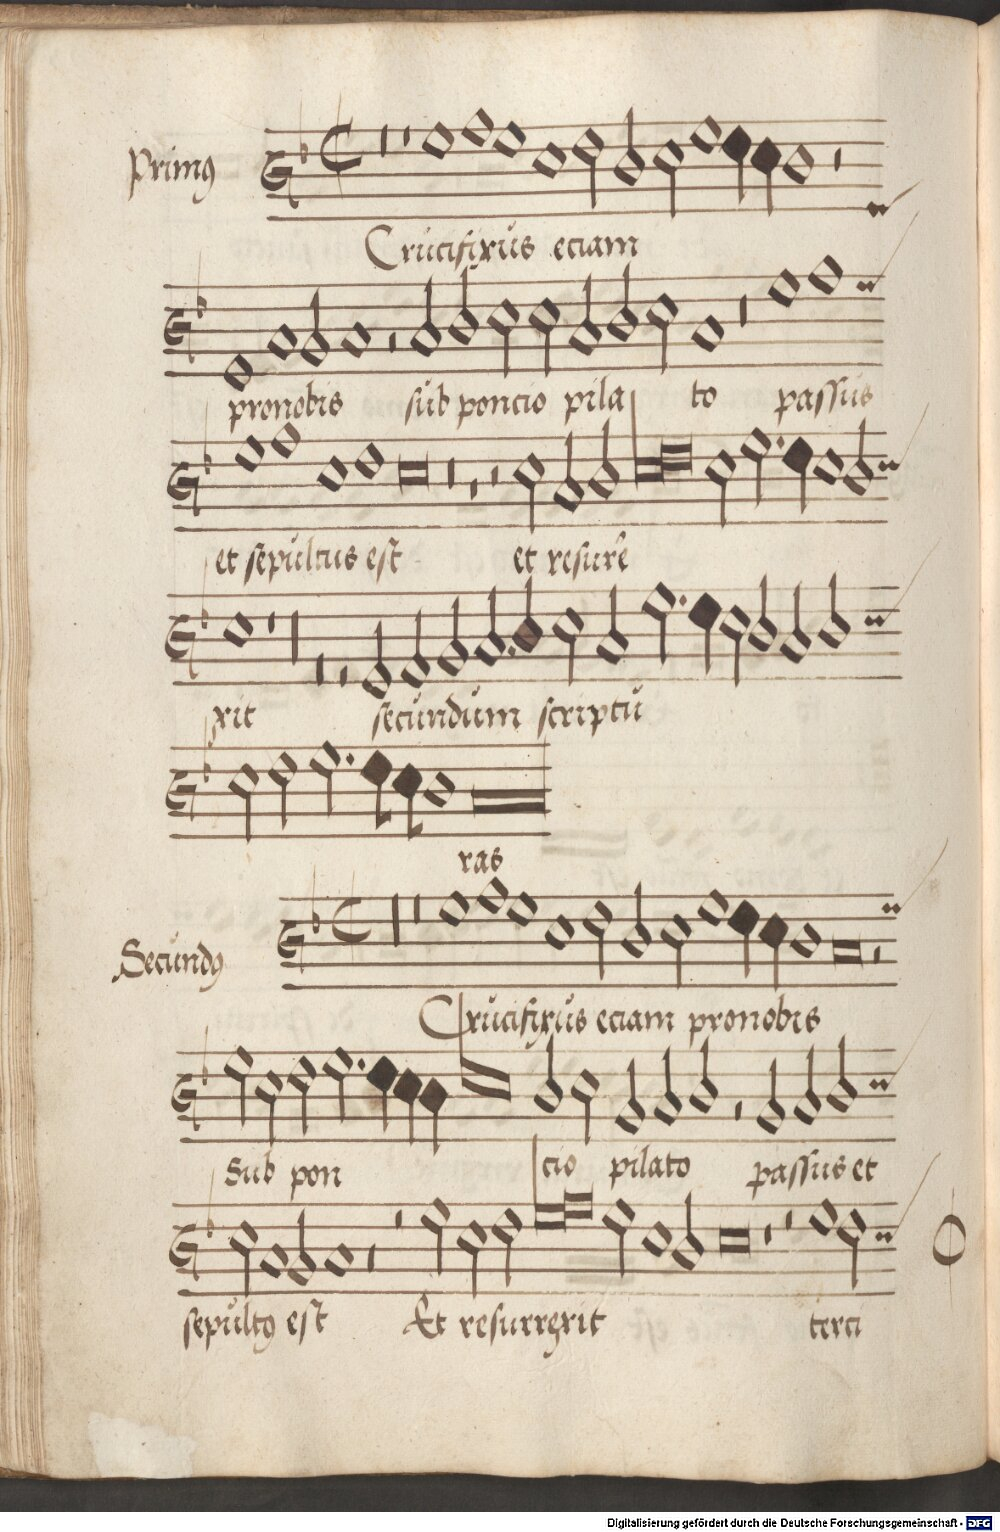 Primꝰ
Crucifixus eciam
pronobis sub poncio pila to passus
et sepultus est et resurē
xit secundum scriptu
ras
Secundꝰ
Crucifixus eciam pronobis
Sub pon cio pilato passus et
sepultꝰ est Et resurrexit terci
Digitalisierung gefördert durch die Deutsche Forschungsgemeinschaft - DFG